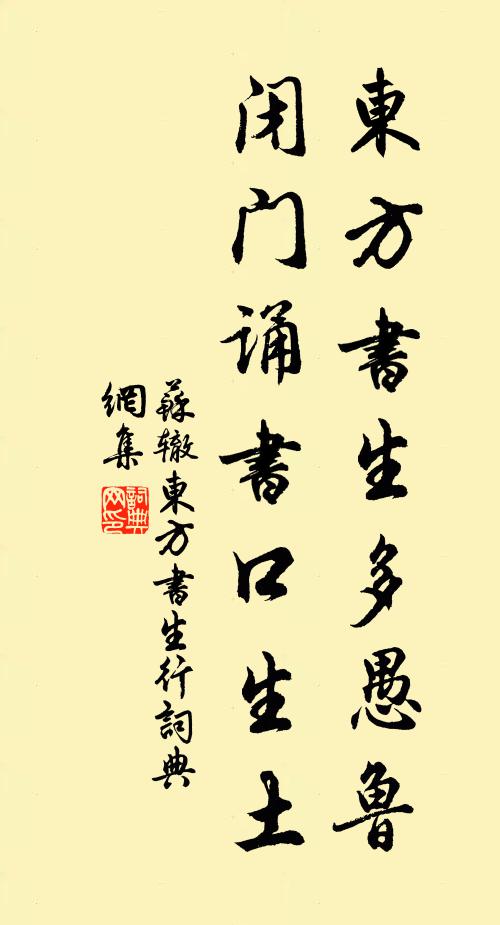 東方書生多愚魯
闭门诵書口生土
蘇辙東方書生行詞典
網集
詞典
网印